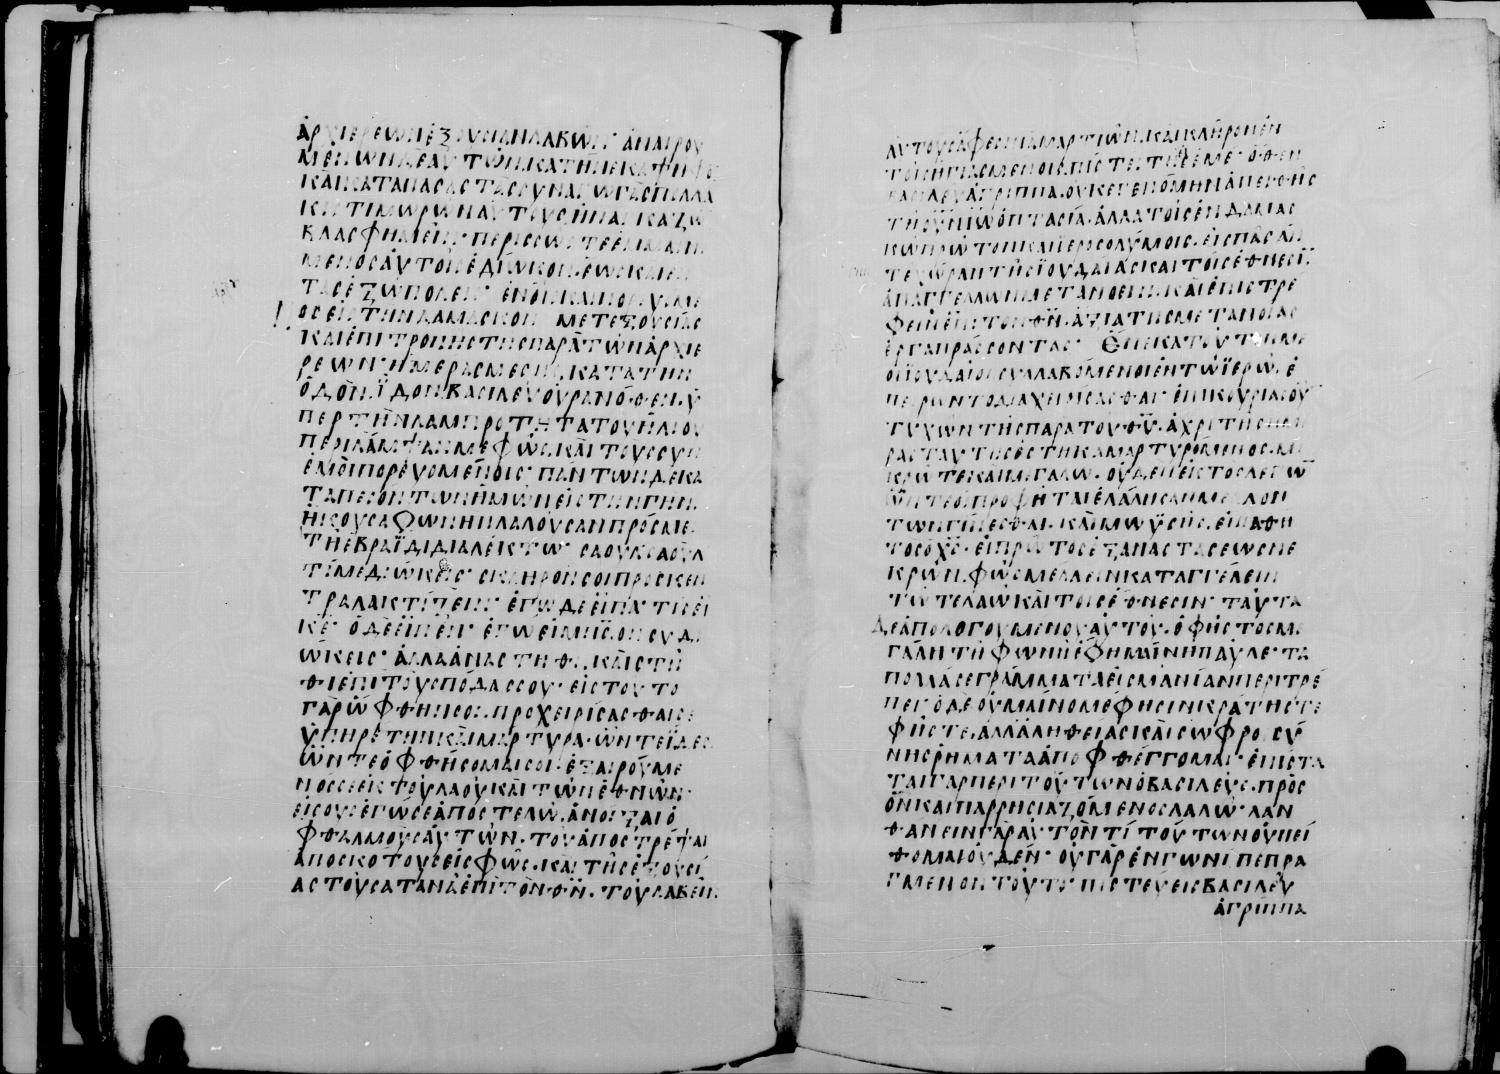 ἀρχιερέων ἐξουσίαν λαβών· ἀναιρου
μένων δὲ αὐτῶν. κατήνεγκα ψῆφο
καὶ κατὰ πάσας τὰς συναγωγὰς πολλά
κις τιμωρῶν αὐτοὺς ἠνάγκαζω
βλασφημεῖν· περισσῶς τε ἐμμαιν
μενος αὐτοῖς ἐδίωκον. ἕως καὶ εἰς
τὰς ἔξω πόλεις· ἐν οἷς καὶ πορευόμε
ος εἰς τὴν δαμασκὸν μετ ἐξουσίας
καὶ ἐπιτροπῆς τῆς παρὰ τῶν ἀρχιε
ρέων· ἡμέρας μέσης. κατὰ τὴν
ὁδὸν ἴδον βασιλεῦ οὐρανόθεν. ὑ
πὲρ τὴν λαμπρότητα τοῦ ἡλίου
περιλάμψαν με φῶς. καὶ τοὺς συν
ἐμοὶ πορευομένοις· πάντων δὲ κα
ταπεσόντων ἡμῶν εἰς τὴν γῆν.
ἤκουσα φωνὴν λαλοῦσαν πρός με
τῇ ἑβραΐδι διαλέκτω· σαοὺλ σαοὺλ
τί με διώκεις· σκληρόν σοι πρὸς κέν
τρα λακτίζειν· ἐγὼ δὲ εἶπα· τίς εἶ
κε· ὁ δὲ εἶπεν· ἐγώ εἰμι ις ὃν σὺ δι
ώκεις· ἀλλὰ ἀνάστηθι. καὶ στῆ
θι ἐπὶ τοὺς πόδας σου· εἰς τοῦτο
γὰρ ὤφθην σοι. προχειρίσασθαί σε
ὑπηρέτην καὶ μάρτυρα· ὧν τε εἶδες
ὧν τε ὀφθήσομαί σοι. ἐξαιρούμε
νός σε ἐκ τοῦ λαοῦ καὶ τῶν ἐθνῶν·
εἰς οὓς ἐγώ σε ἀποστέλω. ἀνοῖξαι ὀ
φθαλμοὺς αὐτῶν. τοῦ ἀποστρέψαι
ἀπὸ σκότους εἰς φῶς. καὶ τῆς ἐξουσί
ας τοῦ σατανᾶ ἐπὶ τὸν θν. τοῦ λαβεῖν
αὐτοὺς ἄφεσιν ἁμαρτιῶν. καὶ κλῆρον ἐν
τοῖς ἡγιασμένοις πίστει τῇ εἰς ἐμέ· ὅθεν
βασιλεῦ ἀγρίππα. οὐκ ἐγενόμην ἀπειθὴς
τῇ οὐνίω ὀπτασία. ἀλλὰ τοῖς ἐν δαμας
κῶ πρῶτον καὶ ἱεροσολύμοις. εἰς πᾶσάν
τε χώραν τῆς ἰουδαίας καὶ τοῖς ἔθνεσι.
ἀπαγγέλλων μετανοεῖν. καὶ ἐπιστρέ
φειν ἐπὶ τὸν θν. ἄξια τῆς μετανοίας
ἔργα πράσσοντας· ἕνεκα τούτων με
οἱ ἰουδαῖοι συλλαβόμενοι ἐν τῶ ἱερῶ. ἐ
πειρῶντο διαχειρίσασθαι· ἐπικουρίας οὖ
τυχὼν τῆς παρὰ τοῦ θυ. ἄχρι τῆς ἡμέ
ρας ταύτης ἕστηκα μαρτυρόμενος. μι
κρῶ τε καὶ μεγάλω. οὐδὲν ἐκτὸς λέγω
ὧν τε οἱ προφῆται ἐλάλησαν μελλόν
των γίνεσθαι. καὶ μωϋσῆς. εἰ παθη
τὸς ὁ χς· εἰ πρῶτος ἐξ ἀναστάσεως νε
κρῶν. φῶς μέλλειν καταγγέλειν
τῶ τε λαῶ καὶ τοῖς ἔθνεσιν· ταῦτα
δὲ ἀπολογουμένου αὐτοῦ. ὁ φῆστος με
γάλη τῆ φωνῆ ἔφη μαίνη παῦλε· τὰ
πολλά σε γράμματα εἰς μανίαν περιτρέ
πει· ὁ δὲ οὐ μαίνομέ φησιν κράτηστε
φῆστε. ἀλλὰ ἀληθείας καὶ σωφροσύ
νης ῥήματα ἀποφθέγγομαι· ἐπίστα
ται γὰρ περὶ τούτων ὁ βασιλεύς. πρὸς
ὃν καὶ παρρησιαζόμενος λαλῶ· λαν
θάνειν γὰρ αὐτὸν τί τούτων οὐ πεί
θομαι οὐδέν· οὐ γὰρ ἐν γωνί πεπρα
γμένον τοῦτο· πιστεύεις βασιλεῦ
ἀγρίππα